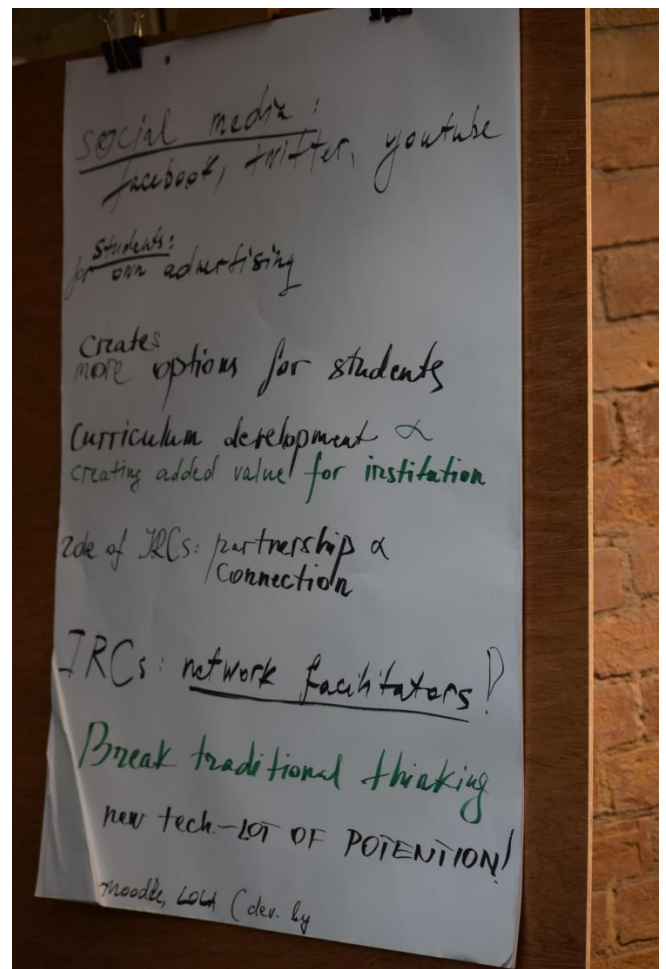 social media:
facebook, twitter, youtube
students:
for own advertising
creates
more options for students
Curriculum development &
creating added value for institution
role of IRCs: partnership &
connection
IRCs: network facilitators!
Break traditional thinking
new tech - LOT OF POTENTION!
moodle, LOLA (dev. by